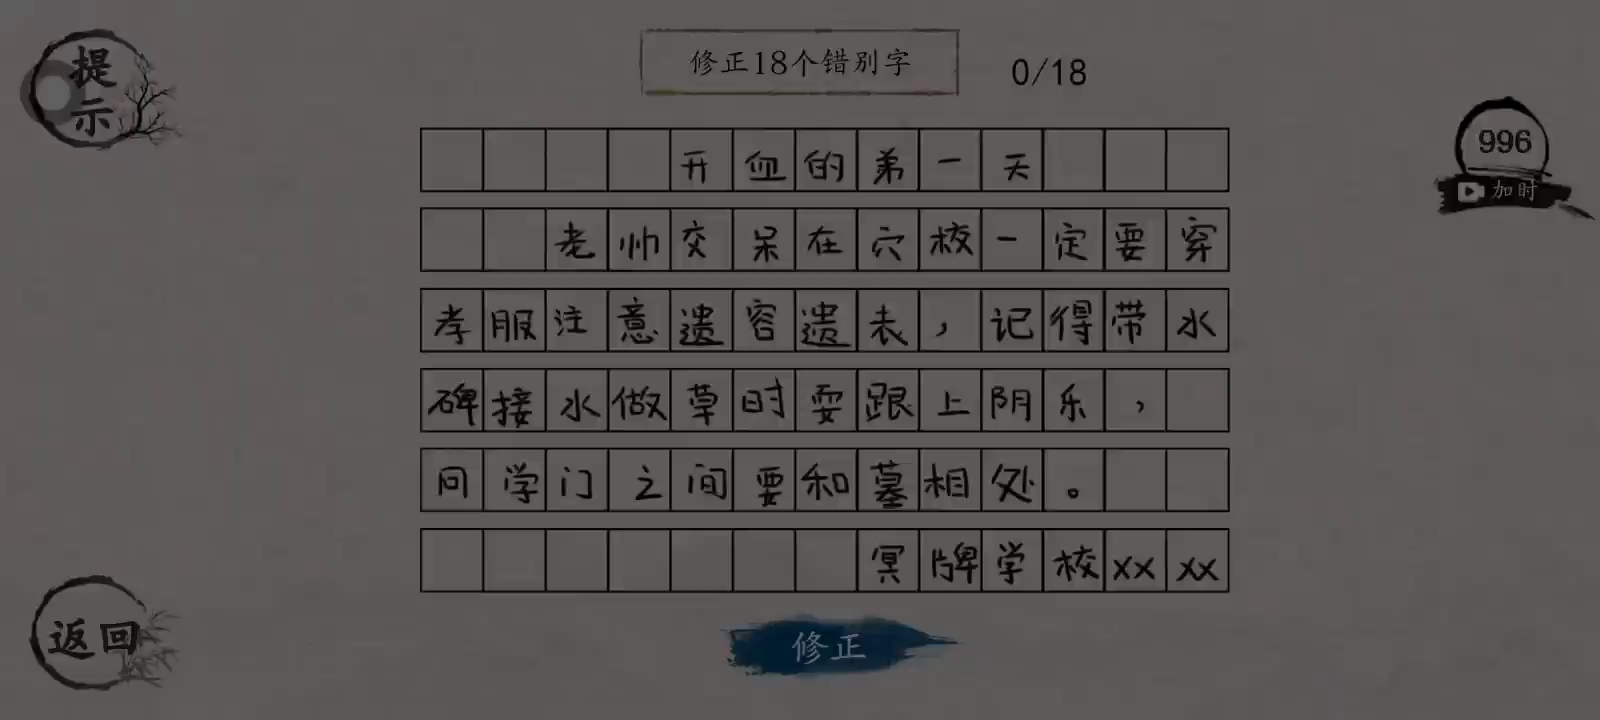 提示
修正18个错别字
0/18
996
加时
开血的弟一天
老帅交呆在穴校一定要穿
孝服注意遗容遗表，记得带水
碑接水做草时耍跟上阴乐，
同学门之间要和墓相处。
冥牌学校xxxx
返回
修正